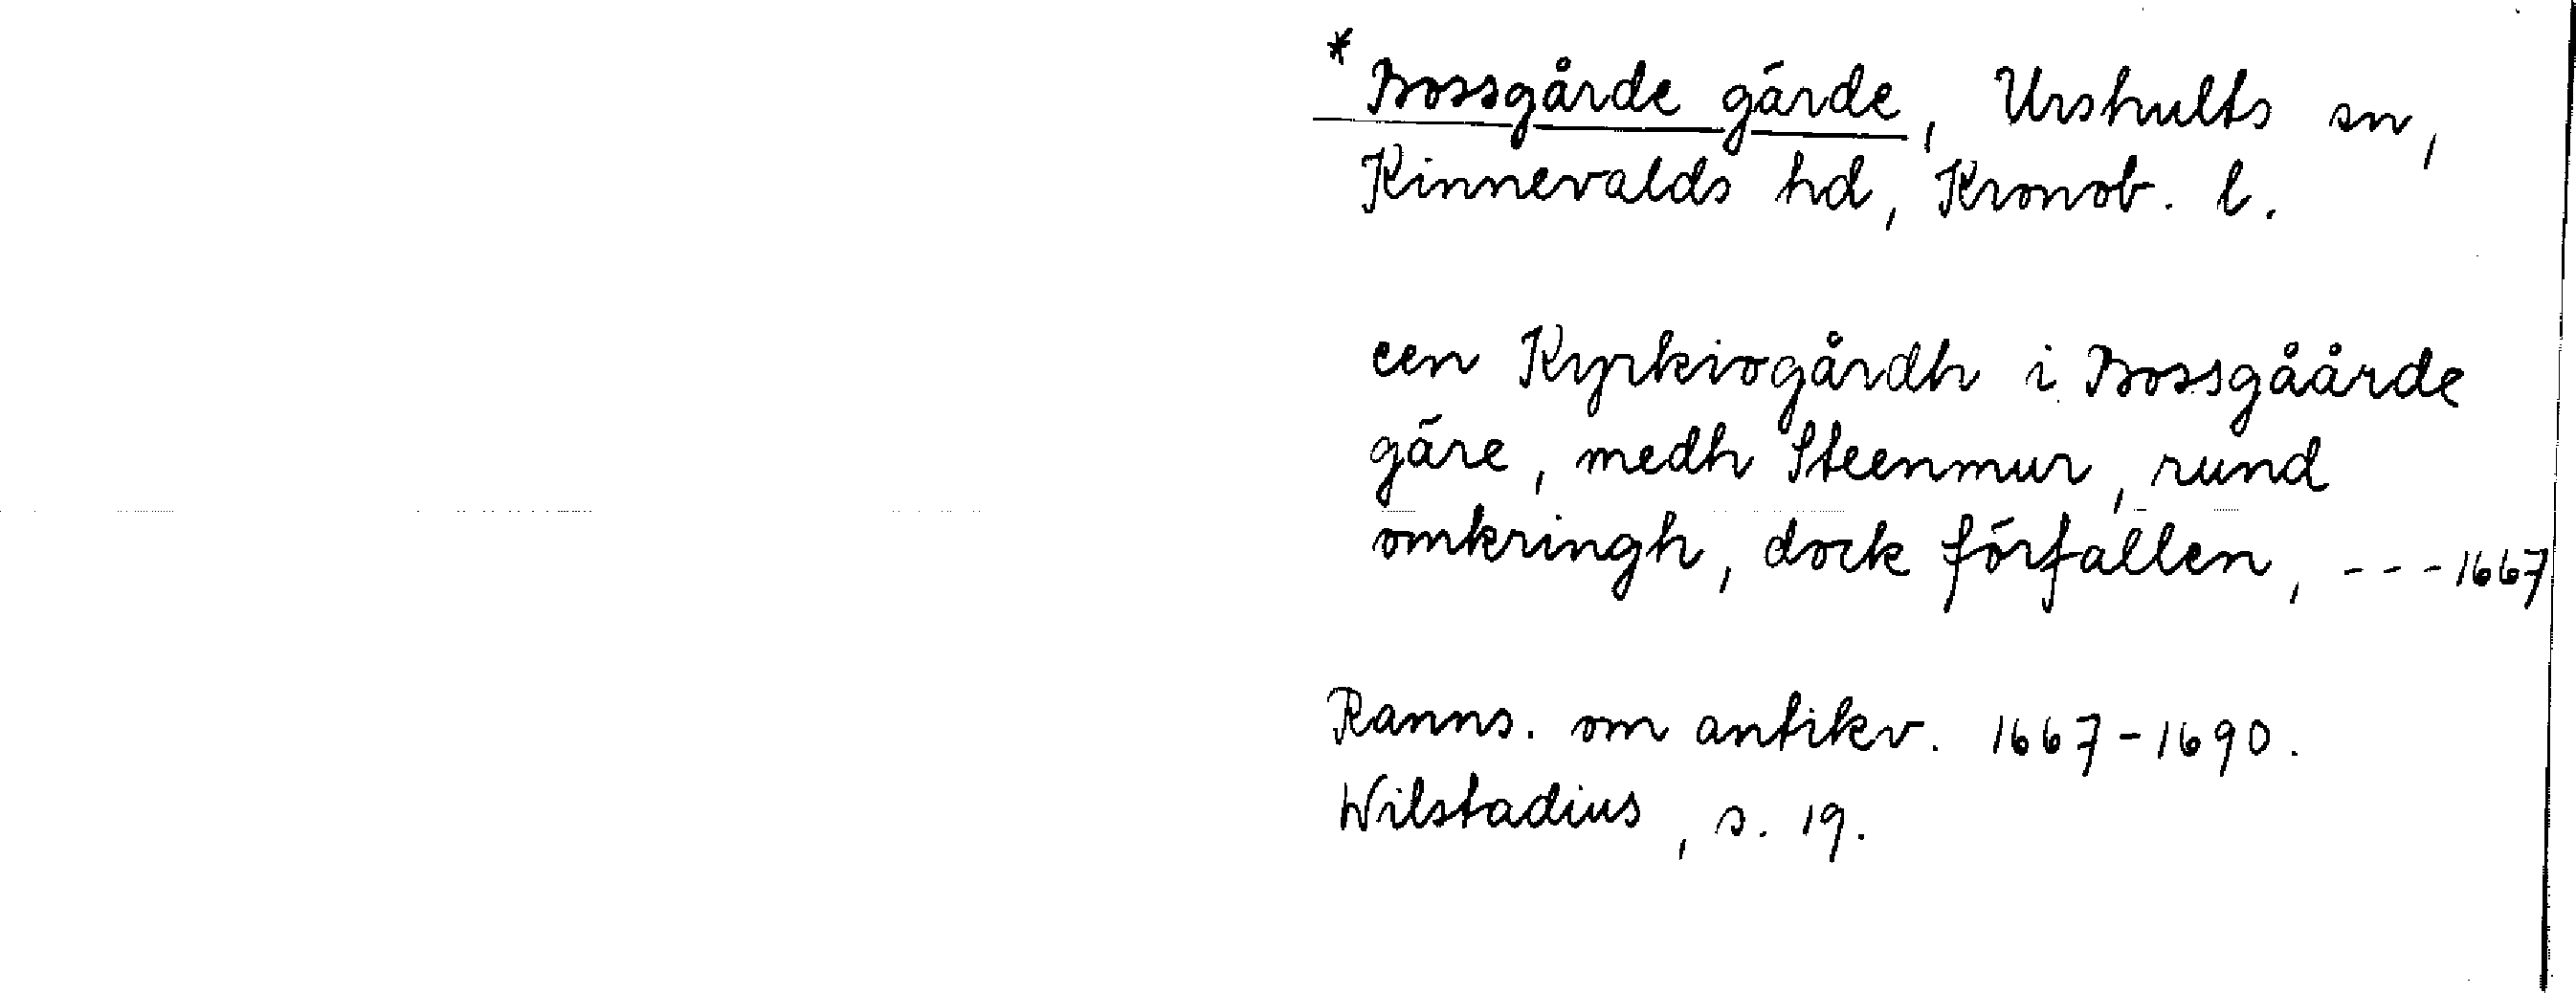 * Bossgårde gärde, Urshults sn,
Kinnevalds hd, Kronob. l.
een Kyrkiogårdh i Bossgåårde
gäre, medh Steenmur, rund
omkringh, dock förfallen, --- 1667
Ranns. om antikv. 1667-1690.
Wilstadius, s. 19.